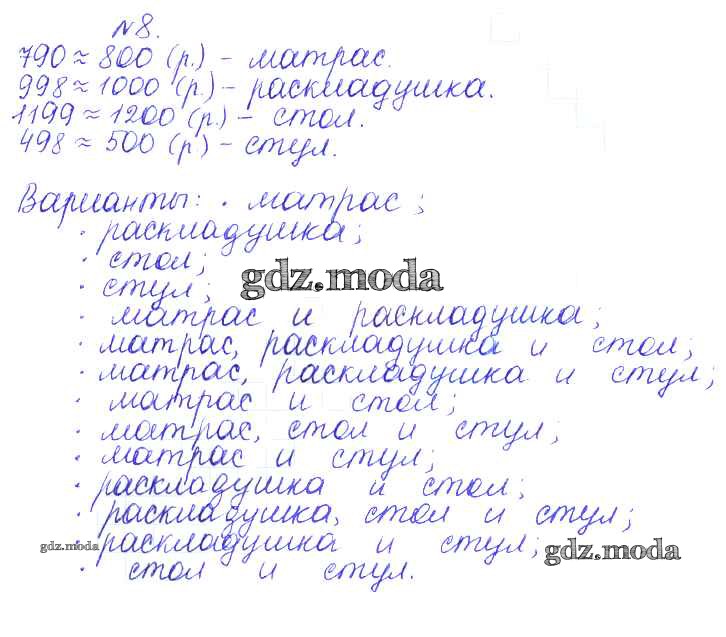 №8.
790 ≈ 800 (р.) - матрас.
998 ≈ 1000 (р.) - раскладушка.
1199 ≈ 1200 (р.) - стол.
498 ≈ 500 (р) - стул.
Варианты: · матрас;
· раскладушка;
· стол;
gdz.moda
· стул;
· матрас и раскладушка;
· матрас, раскладушка и стол;
· матрас, раскладушка и стул;
· матрас и стол;
· матрас, стол и стул;
· матрас и стул;
· раскладушка и стол;
· раскладушка, стол и стул;
gdz.moda
· раскладушка и стул;
gdz.moda
· стол и стул.